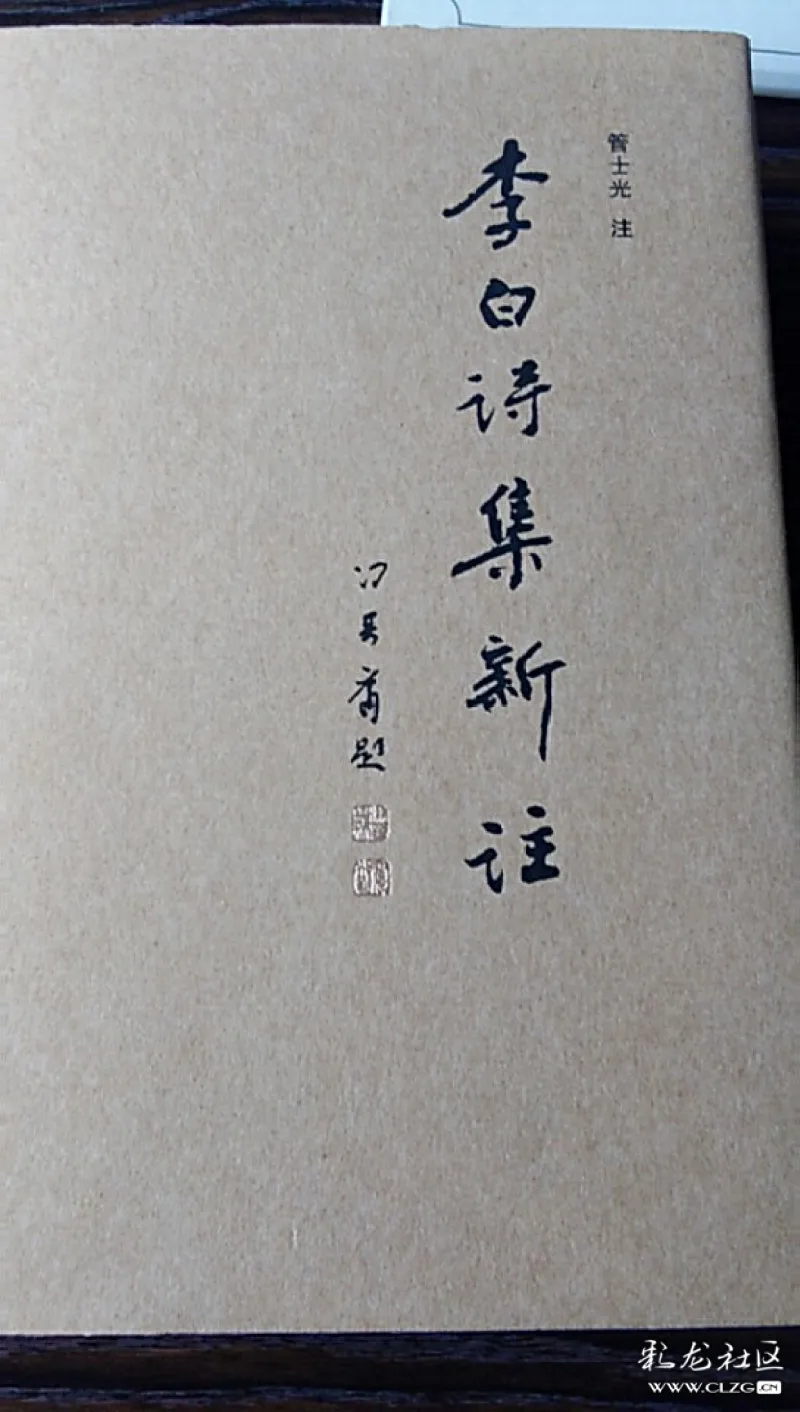 管士光 注
李白诗集新註
题
彩龙社区
WWW.CLZG.CN